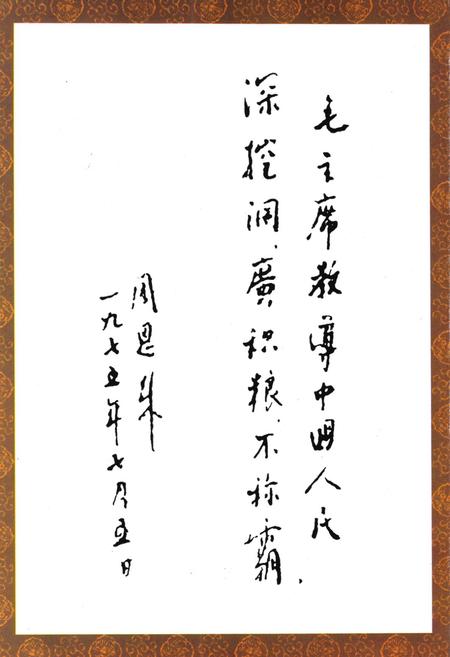 毛主席教导中国人民
深挖洞、廣积粮、不称霸.
周恩来
一九七五年七月五日